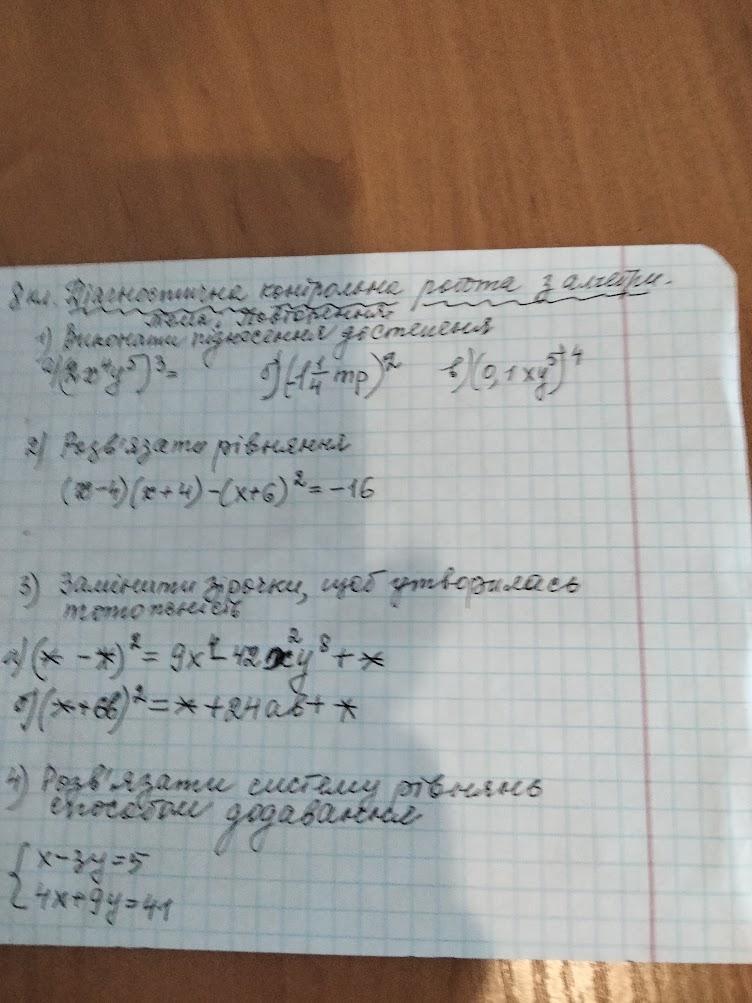 8 кл. Діагностична контрольна робота з алгебри.
Тема: Повторення
1) Виконати піднесення до степеня
а) (2x⁴y⁵)³ = б) (-1 1/4 mp)² в) (0,1xy⁵)⁴
2) Розв'язати рівняння
(x-4)(x+4)-(x+6)²=-16
3) Замінити зірочки, щоб утворилась
тотожність
а) (* - *)² = 9x⁴ - 42x²y⁸ + *
б) (* + 6b)² = * + 24ab + *
4) Розв'язати систему рівнянь
способом додавання
{ x-3y=5
4x+9y=41